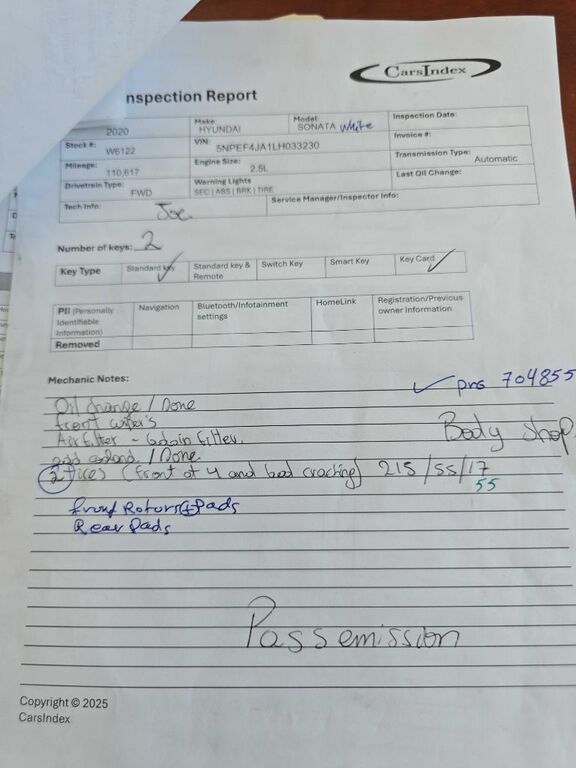 CarsIndex
nspection Report
2020 Make: HYUNDAI Model: SONATA White Inspection Date:
Stock #: W6122 VIN: 5NPEF4JA1LH033230 Invoice #:
Mileage: 110,617 Engine Size: 2.5L Transmission Type: Automatic
Drivetrain Type: FWD Warning Lights SEC | ABS | BRK | TIRE Last Oil Change:
Tech Info: Joe Service Manager/Inspector Info:
Number of keys: 2
Key Type Standard key Standard key & Remote Switch Key Smart Key Key Card
PII (Personally Identifiable Information) Navigation Bluetooth/Infotainment settings HomeLink Registration/Previous owner Information
Removed
Mechanic Notes:
704855
Oil change / Done
front
Air filter - filter.
Body shop
add / Done
2 Tires (front at 4 and bad cracking) 215/55/17
55
front Rotors + Pads
Rear Pads
Pass emission
Copyright © 2025
CarsIndex